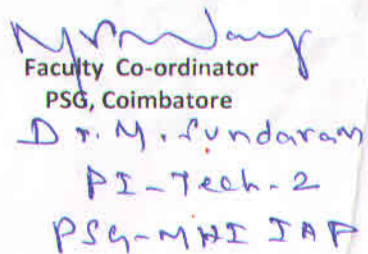 Faculty Co-ordinator
PSG, Coimbatore
Dr. M. Sundaram
PI-Tech-2
PSG-MHI IAP